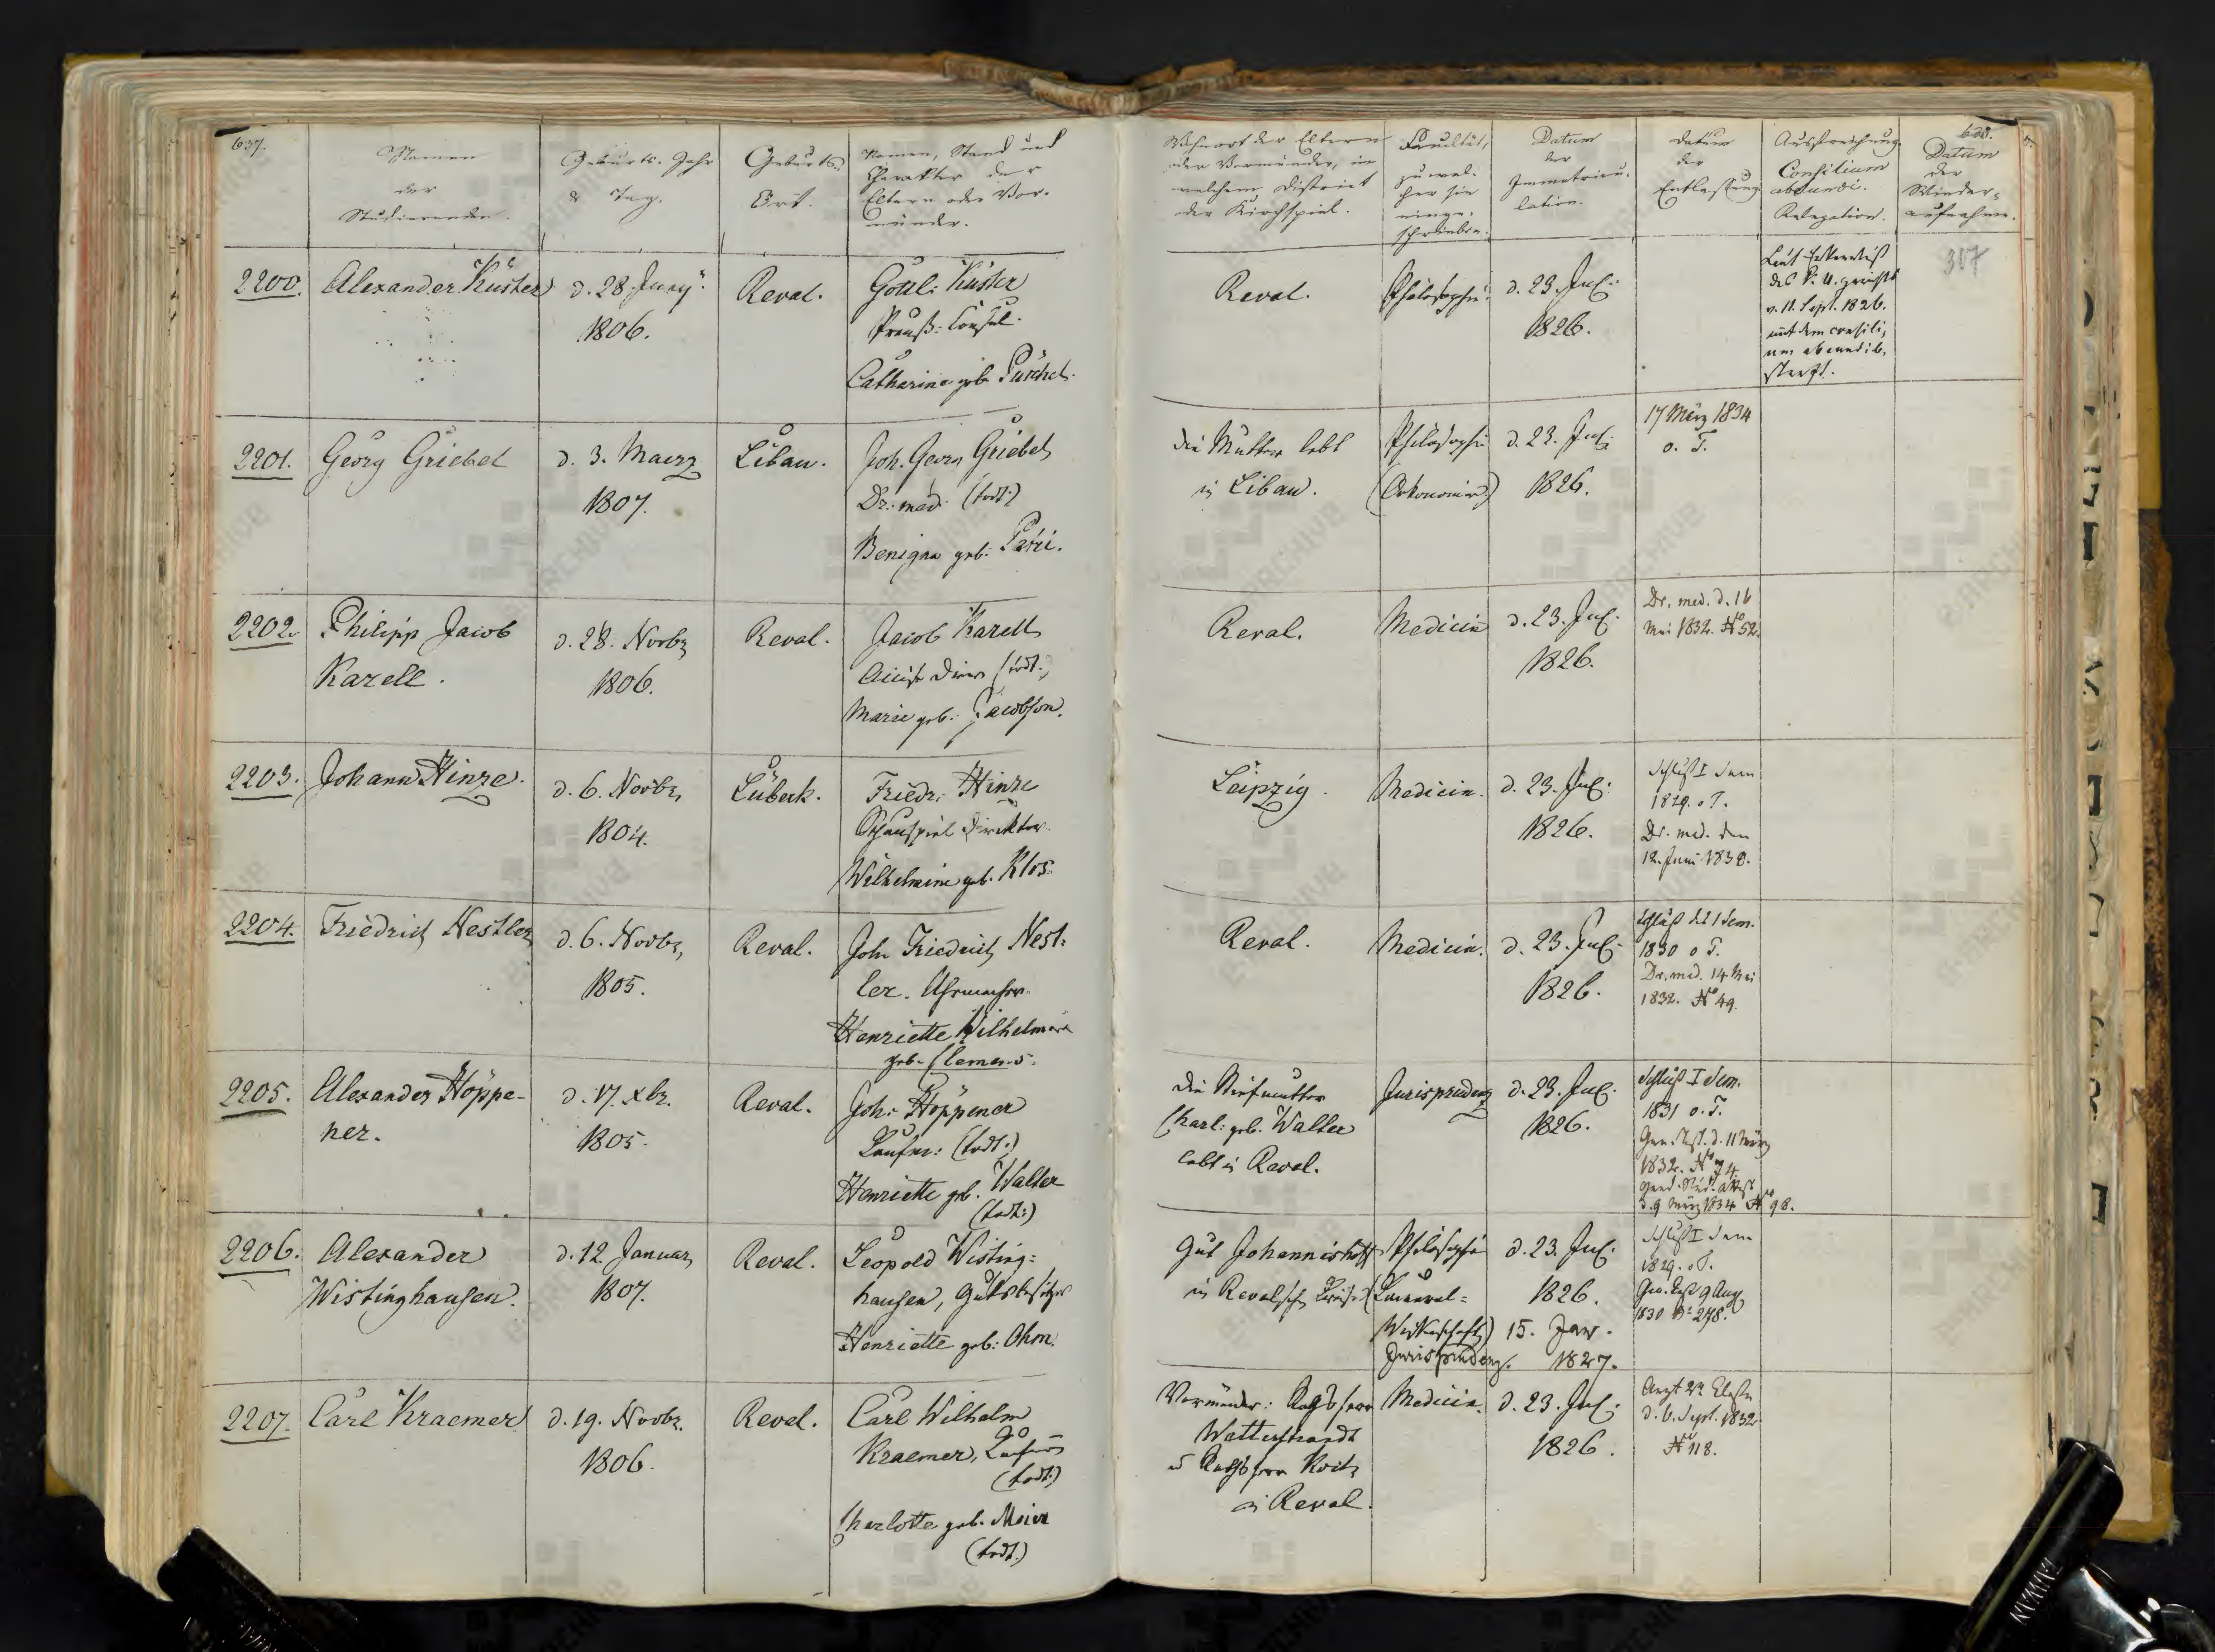 637.
Namen
der
Studierenden.
Geburts-Jahr
& Tag.
Geburts-
Ort.
Namen, Stand und
Charakter der
Eltern oder Vor-
münder.
Wohnort der Eltern
oder Vormünder, in
welchem District
der Kirchspiel.
Facultät,
zu wel-
cher sie
einge-
schrieben.
Datum
der
Immatricu-
lation.
Datum
der
Entlassung
Ausstreichung.
Consilium
abeundi.
Relegation.
638.
Datum
der
Wieder-
aufnahme.
317
2200.
Alexander Küster
d. 28. Juny
1806.
Reval.
Gottl. Küster
Preuß. Consul.
Catharina geb.
Reval.
Philosophie.
d. 23. Jul.
1826.
v. 11. Sept. 1826.
mit dem consili-
um abeundi be-
2201.
Georg Griebel
d. 3. Maerz
1807.
Libau.
Joh. Georg Griebel
Dr. med. (todt.)
Benigna geb.
die Mutter lebt
in Libau.
Philosophie
(Oekonomie)
d. 23. Jul.
1826.
17 März 1834
o. T.
2202.
Philipp Jacob
Karell.
d. 28. Novbr
1806.
Reval.
Jacob Karell
(todt.)
Marie geb. Jacobson.
Reval.
Medicin
d. 23. Jul.
1826.
Dr. med. d. 16
Mai 1832. No 52.
2203.
Johann Hinze.
d. 6. Novbr,
1804.
Lübeck.
Friedr. Hinze
Schauspiel Direktor.
Wilhelmine geb. Klos.
Leipzig.
Medicin.
d. 23. Jul.
1826.
Schluß I Sem
1829. o T.
Dr. med. den
12. Juni 1830.
2204.
Friedrich Nestler
d. 6. Novbr,
1805.
Reval.
Joh Friedrich Nest-
ler. Uhrmacher.
Henriette Wilhelmine
geb. Clemens.
Reval.
Medicin.
d. 23. Jul.
1826.
Schluß des I Sem.
1830 o T.
Dr. med. 14 Mai
1832. No 49.
2205.
Alexander Höppe-
ner.
d. 17. xbr.
1805.
Reval.
Joh. Höppener
Kaufm: (todt.)
Henriette geb. Walter
(todt.)
die Stiefmutter
Charl: geb. Walter
lebt in Reval.
Jurisprudenz
d. 23. Jul.
1826.
Schluß I Sem.
1831 o. T.
d. 11 März
1832. No 74
d. 9 März 1834 No 98.
2206.
Alexander
Wistinghausen.
d. 12. Januar
1807.
Reval.
Leopold Wisting-
hausen, Gutsbesitzer
Henriette geb: Ohm.
Gut Johannishoff
in Revalschen Kreise
Philosophie
(Cameral-
Wissenschaft)
Jurisprudenz.
d. 23. Jul.
1826.
15. Jan.
1827.
Schluß I Sem
1829. o T.
9 Aug
1830 No 278.
2207.
Carl Kraemer
d. 19. Novbr.
1806.
Reval.
Carl Wilhelm
Kraemer, Kaufm
(todt.)
Charlotte geb. Meier
(todt.)
Vormünder: Rathsherr
Wetterstrandt
u Rathsherr
in Reval.
Medicin.
d. 23. Jul:
1826.
Arzt 2r Classe
d. 6. Sept. 1832
No 118.